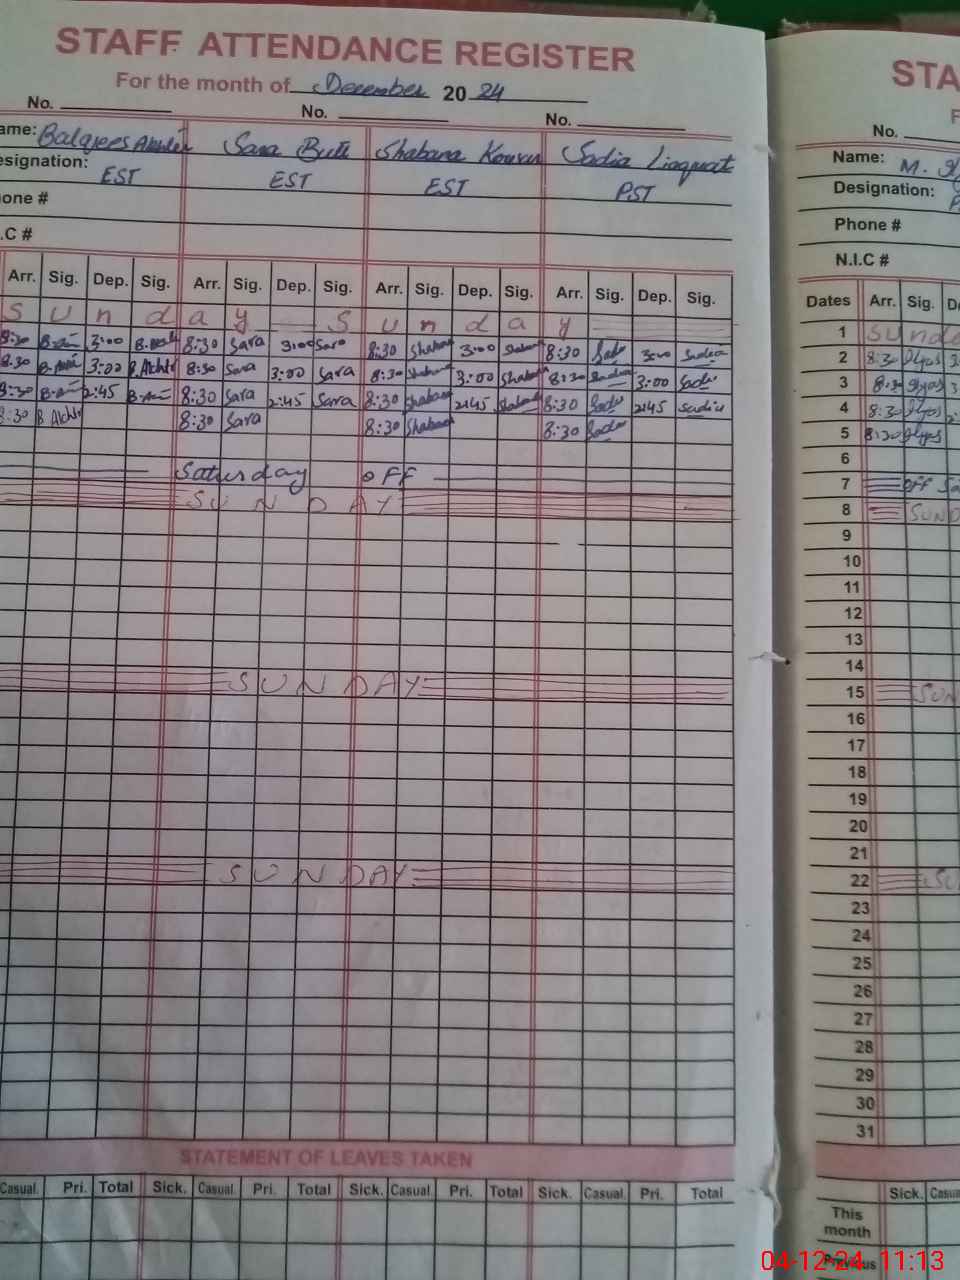 STAFF ATTENDANCE REGISTER
For the month of December 2024
No. No. No.
ame: Balqees Akhter Sara Butt Shabana Kousar Sadia Liaquat
esignation: EST EST EST PST
one #
.C #
Arr. Sig. Dep. Sig. Arr. Sig. Dep. Sig. Arr. Sig. Dep. Sig. Arr. Sig. Dep. Sig.
Sunday Sunday
8:30 3:00 8:30 Sara 3:00 Sara 8:30 Shabana 3:00 Shabana 8:30 Sadia 3:00 Sadia
8:30 3:00 B.Akhtr 8:30 Sara 3:00 Sara 8:30 Shabana 3:00 Shabana 8:30 Sadia 3:00 Sadia
8:30 2:45 8:30 Sara 2:45 Sara 8:30 Shabana 2:45 Shabana 8:30 Sadia 2:45 Sadia
8:30 B.Akhtr 8:30 Sara 8:30 Shabana 8:30 Sadia
Saturday OFF
SUNDAY
SUNDAY
SUNDAY
STATEMENT OF LEAVES TAKEN
Casual. Pri. Total Sick. Casual. Pri. Total Sick. Casual. Pri. Total Sick. Casual. Pri. Total
STA
No.
Name: M.
Designation:
Phone #
N.I.C #
Dates Arr. Sig. D
1 Sund
2 8:30 Ilyas 3
3 8:30 Ilyas 3
4 8:30 Ilyas 2
5 8:30 Ilyas
6
7 OFF Sa
8 SUND
9
10
11
12
13
14
15 SUN
16
17
18
19
20
21
22 SU
23
24
25
26
27
28
29
30
31
Sick. Casua
This
month
Previous
04-12-24 11:13